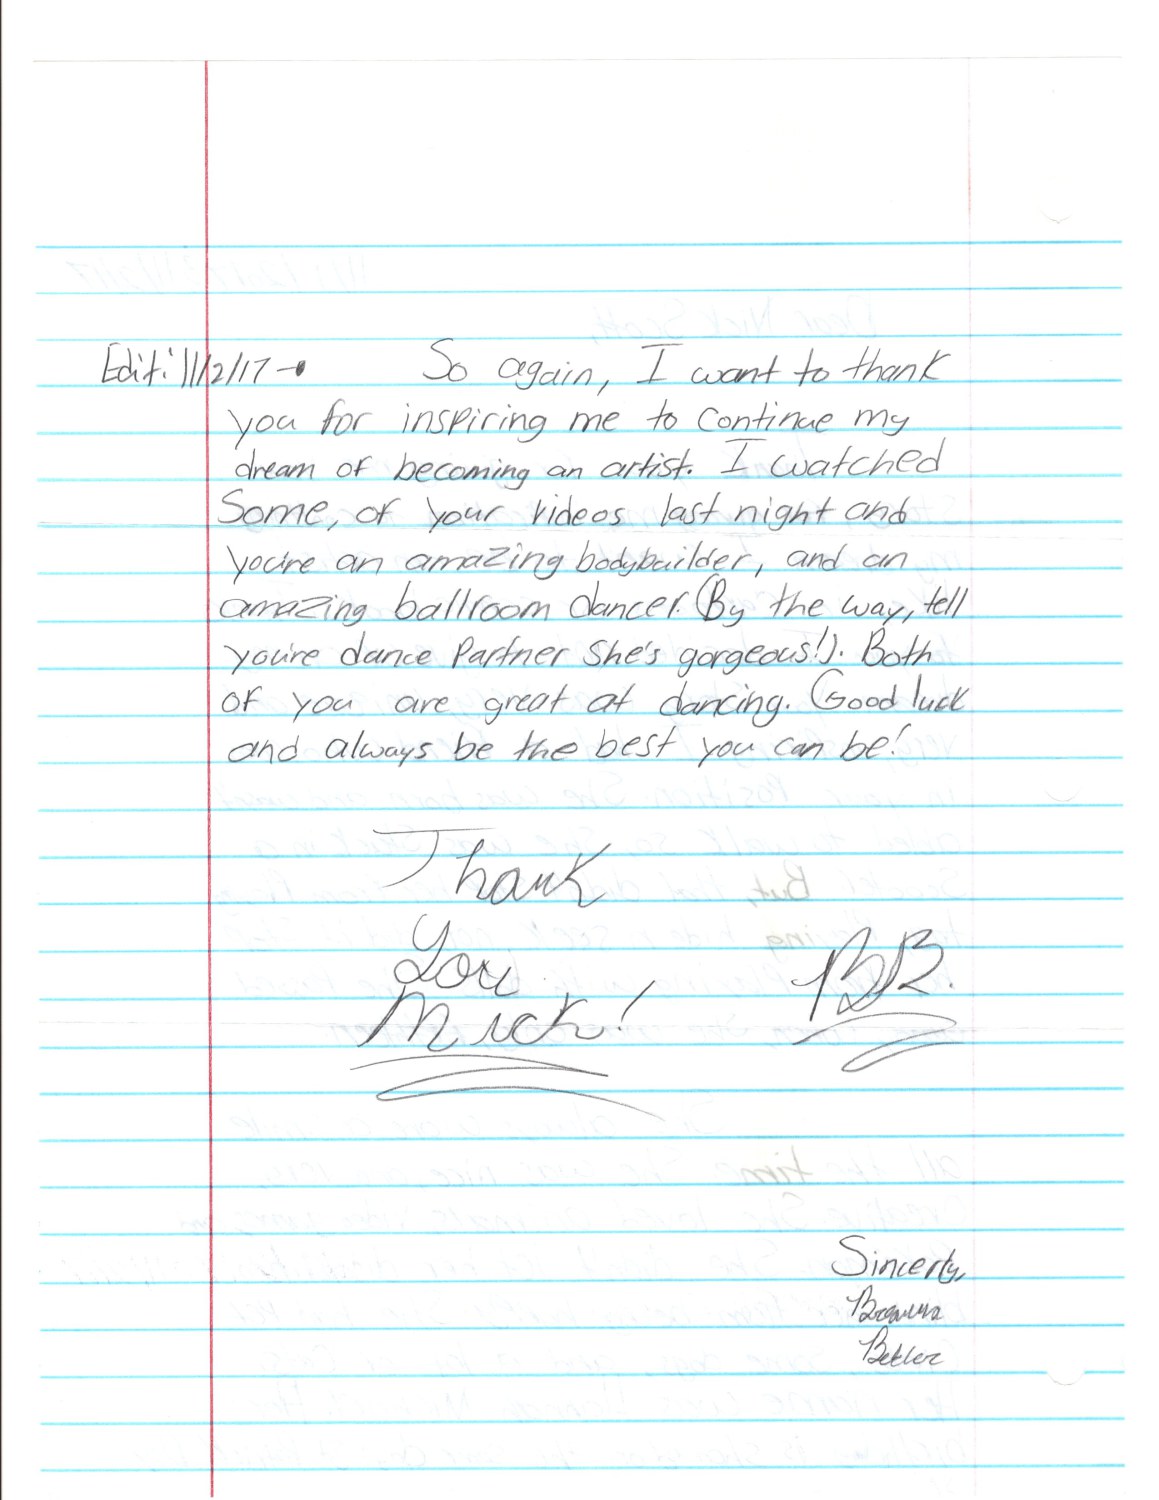 Edit: 11/2/17 → So again, I want to thank
you for inspiring me to continue my
dream of becoming an artist. I watched
Some, of your videos last night and
you're an amazing bodybuilder, and an
amazing ballroom dancer. (By the way, tell
you're dance Partner She's gorgeous!). Both
of you are great at dancing. Good luck
and always be the best you can be!
Thank
You
Nick!
BB.
Sincerly,